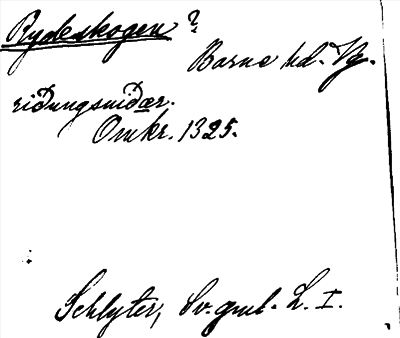 Rydeskogen ?
Barne hd. Vg.
riðungsmiðær.
Omkr. 1325.
Schlyter, Sv. gml. L. I.